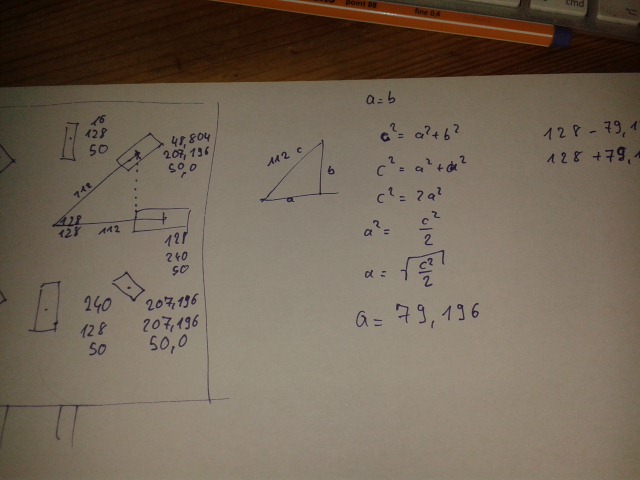 point 88
fine 0,4
cmd
16
128
50
48,804
207,196
50,0
112
128
128
112
128
240
50
240
128
50
207,196
207,196
50,0
112
c
b
a
a=b
c² = a² + b²
c² = a² + a²
c² = 2a²
a² = c²/2
a = √c²/2
a = 79,196
128 - 79,1
128 + 79,1